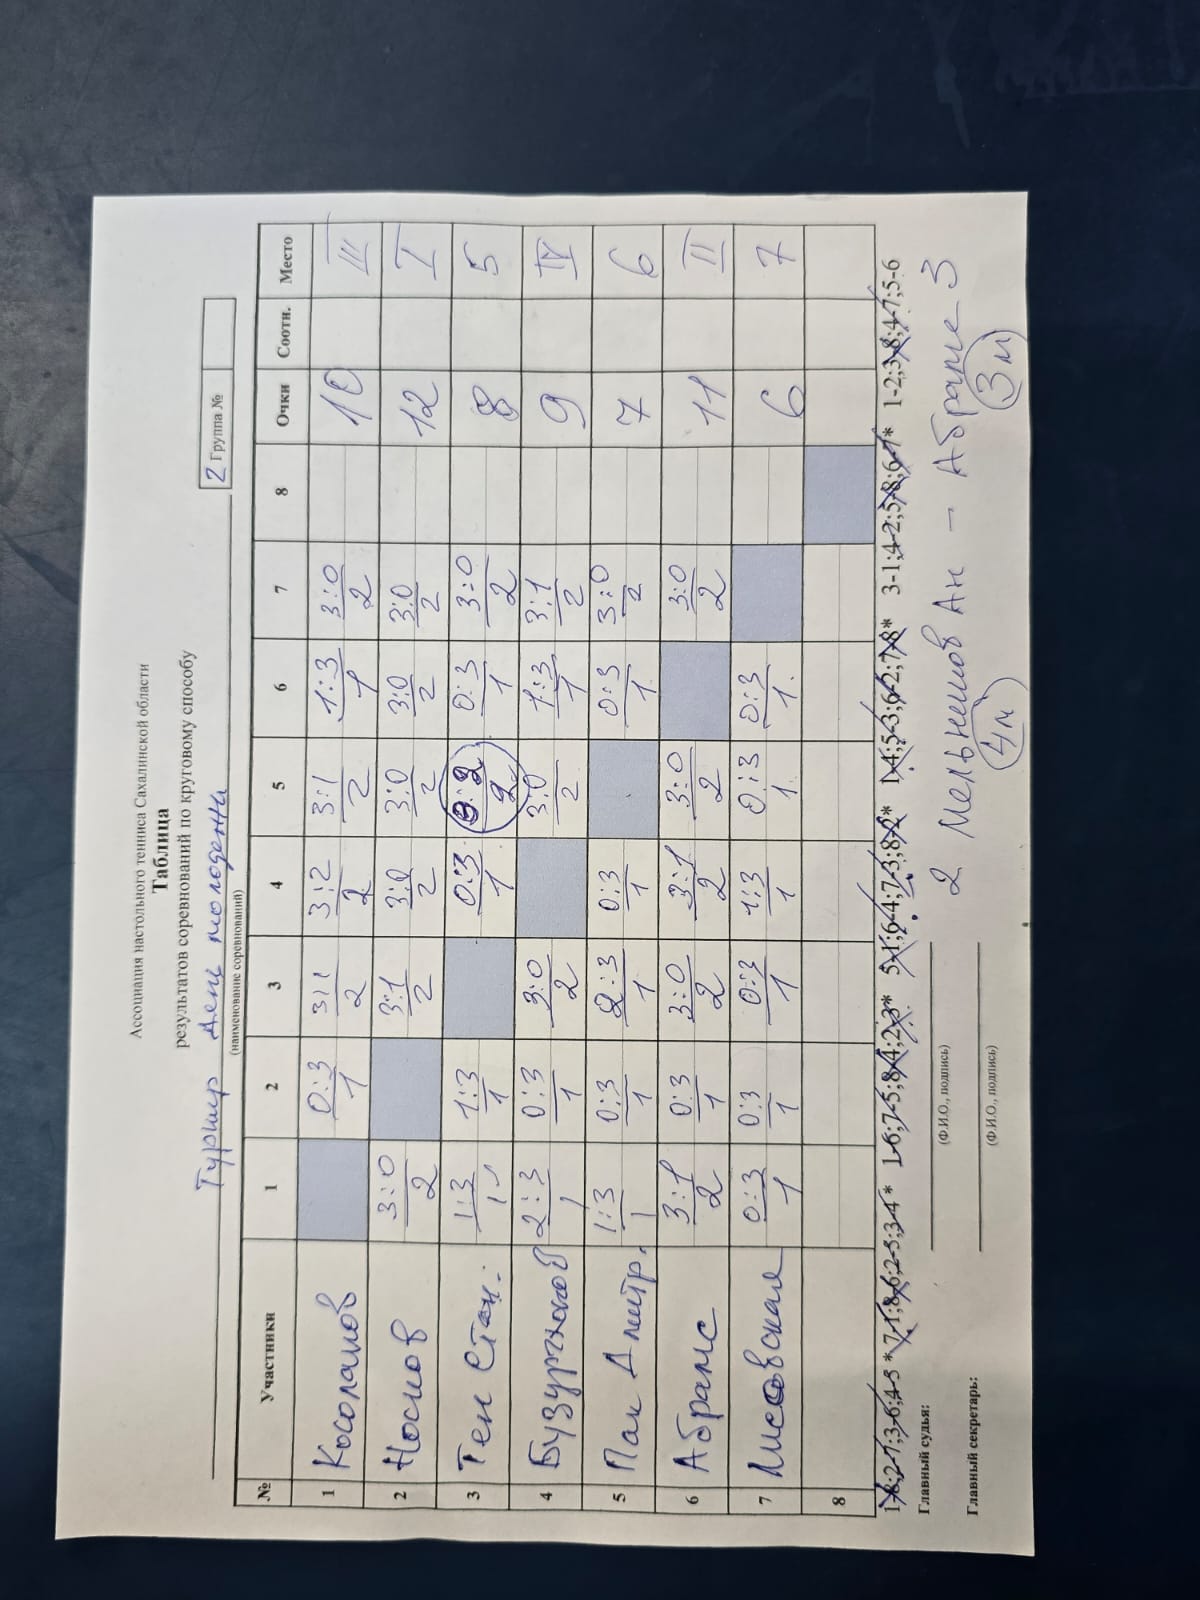 Ассоциация настольного тенниса Сахалинской области
Таблица
результатов соревнований по круговому способу
Турнир день молодежи
(наименование соревнований)
2 Группа №
№ Участники 1 2 3 4 5 6 7 8 Очки Соотн. Место
1 Косолапов 0:3 1 3:1 2 3:2 2 3:1 2 1:3 1 3:0 2 10 III
2 Носков 3:0 2 3:1 2 3:0 2 3:0 2 3:0 2 3:0 2 12 I
3 Тен Стан. 1:3 1 1:3 1 0:3 1 3:2 2 0:3 1 3:0 2 8 5
4 2:3 1 0:3 1 3:0 2 3:0 2 1:3 1 3:1 2 9 IV
5 Пак Дмитр. 1:3 1 0:3 1 2:3 1 0:3 1 0:3 1 3:0 2 7 6
6 Абрамс 3:1 2 0:3 1 3:0 2 3:1 2 3:0 2 3:0 2 11 II
7 Лисовская 0:3 1 0:3 1 0:3 1 1:3 1 0:3 1 0:3 1 6 7
8
1-8;2-7;3-6;4-5 * 7-1;8-6;2-5;3-4 * 1-6;7-5;8-4;2-3* 5-1;6-4;7-3;8-2* 1-4;5-3;6-2;7-8* 3-1;4-2;5-8;6-7* 1-2;3-8;4-7;5-6
Главный судья:
(Ф.И.О., подпись)
2 Мельников Ан - Абрамс 3
4м 3м
Главный секретарь:
(Ф.И.О., подпись)